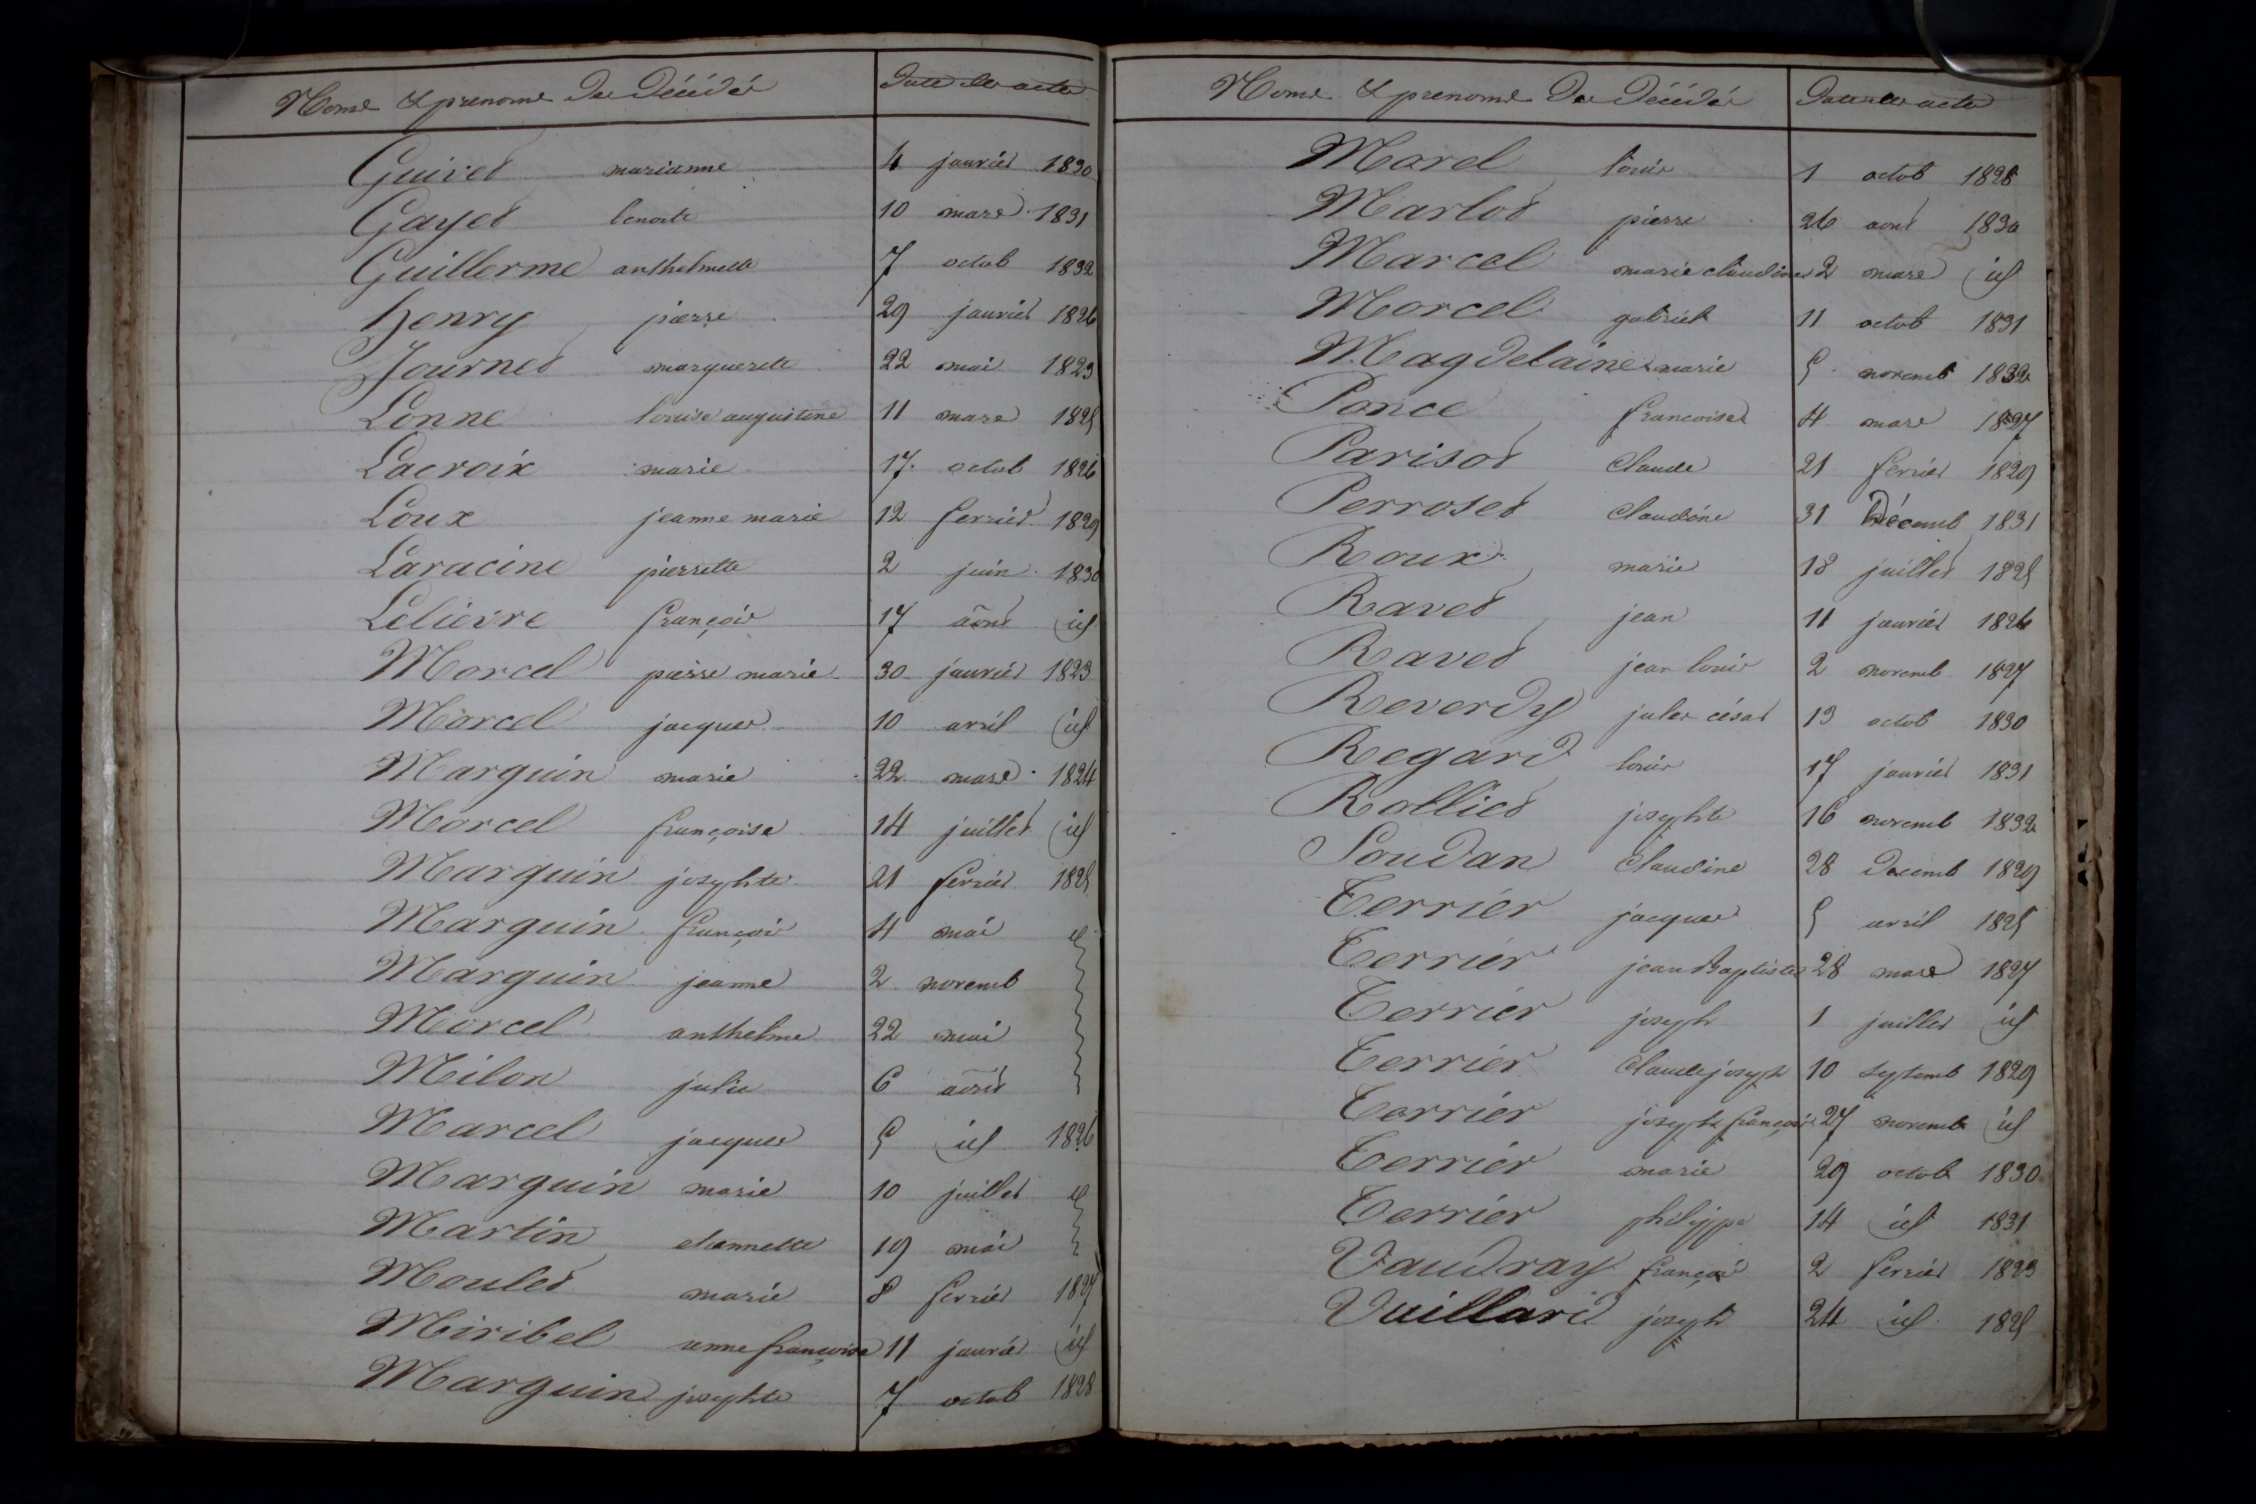 Noms & prenoms des Décédés Date des actes
Guivet marianne 4 janvier 1830
Gayet benoite 10 mars 1831
Guillerme anthelmette 7 octob 1832
henry pierre 29 janvier 1826
Journet marguerete 22 mai 1823
Lonne louise augustine 11 mars 1825
Lacroix marie 17 octob 1826
Loux jeanne marie 12 fevrier 1829
Laracine pierrette 2 juin 1830
Lelievre françois 17 aout id
Morcel pierre marie 30 janvier 1823
Morcel jacques 10 avril id
Marguin marie 22 mars 1824
Morcel françoise 14 juillet id
Marguin josephte 21 fevrier 1825
Marguin françois 4 mai id
Marguin jeanne 2 novemb
Morcel anthelme 22 mai
Milon julie 6 aout
Marcel jacques 5 id 1826
Marguin marie 10 juillet id
Martin etiennette 19 mai
Moulet marie 8 fevrier 1827
Miribel anne françoise 11 janvier id
Marguin josephte 7 octob 1828
Noms & prenoms des Décédés Dates des actes
Morel louis 1 octob 1828
Marlot pierre 26 aout 1830
Marcel marie claudine 2 mars id
Morcel gabriel 11 octob 1831
Magdelaine marie 5 novemb 1832
Ponce francoise 4 mars 1827
Parisot Claude 21 fevrier 1829
Perroset Claudine 31 Décemb 1831
Roux marie 18 juillet 1825
Ravet jean 11 janvier 1826
Ravet jean louis 2 novemb 1827
Reverdy jules césar 13 octob 1830
Regard louis 17 janvier 1831
Rolliet josephte 16 novemb 1832
Soudan Claudine 28 decemb 1829
Terrier jacques 5 avril 1825
Terrier jean Baptiste 28 mars 1827
Terrier joseph 1 juillet id
Terrier Claude joseph 10 septemb 1829
Terrier joseph françois 27 novemb id
Terrier marie 29 octob 1830
Terrier philippe 14 id 1831
Vaudray françois 2 fevrier 1823
Vuillard joseph 24 id 1825